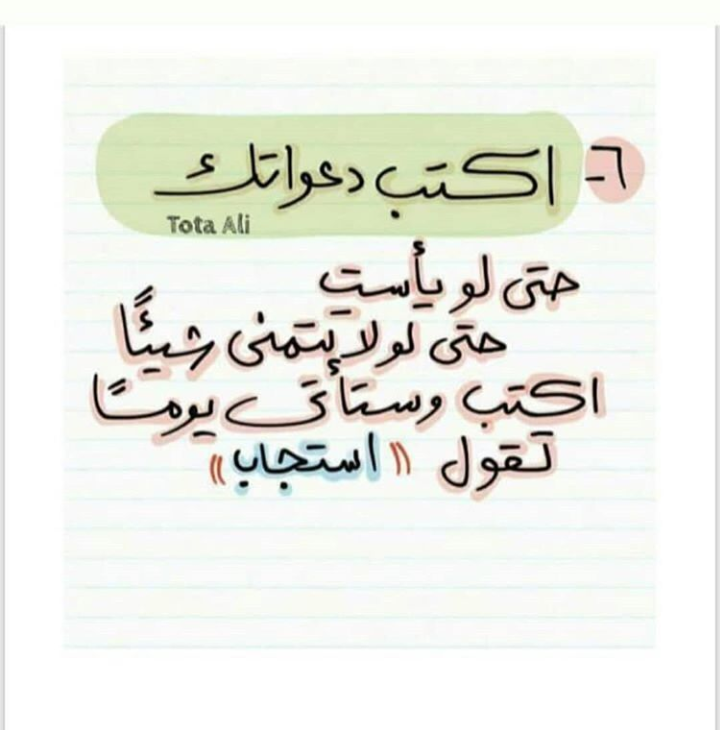 ٦- اكتب دعواتك
Tota Ali
حتى لو يأست
حتى لو لا يتمنى شيئًا
اكتب وستأتى يومًا
تقول "استجاب"